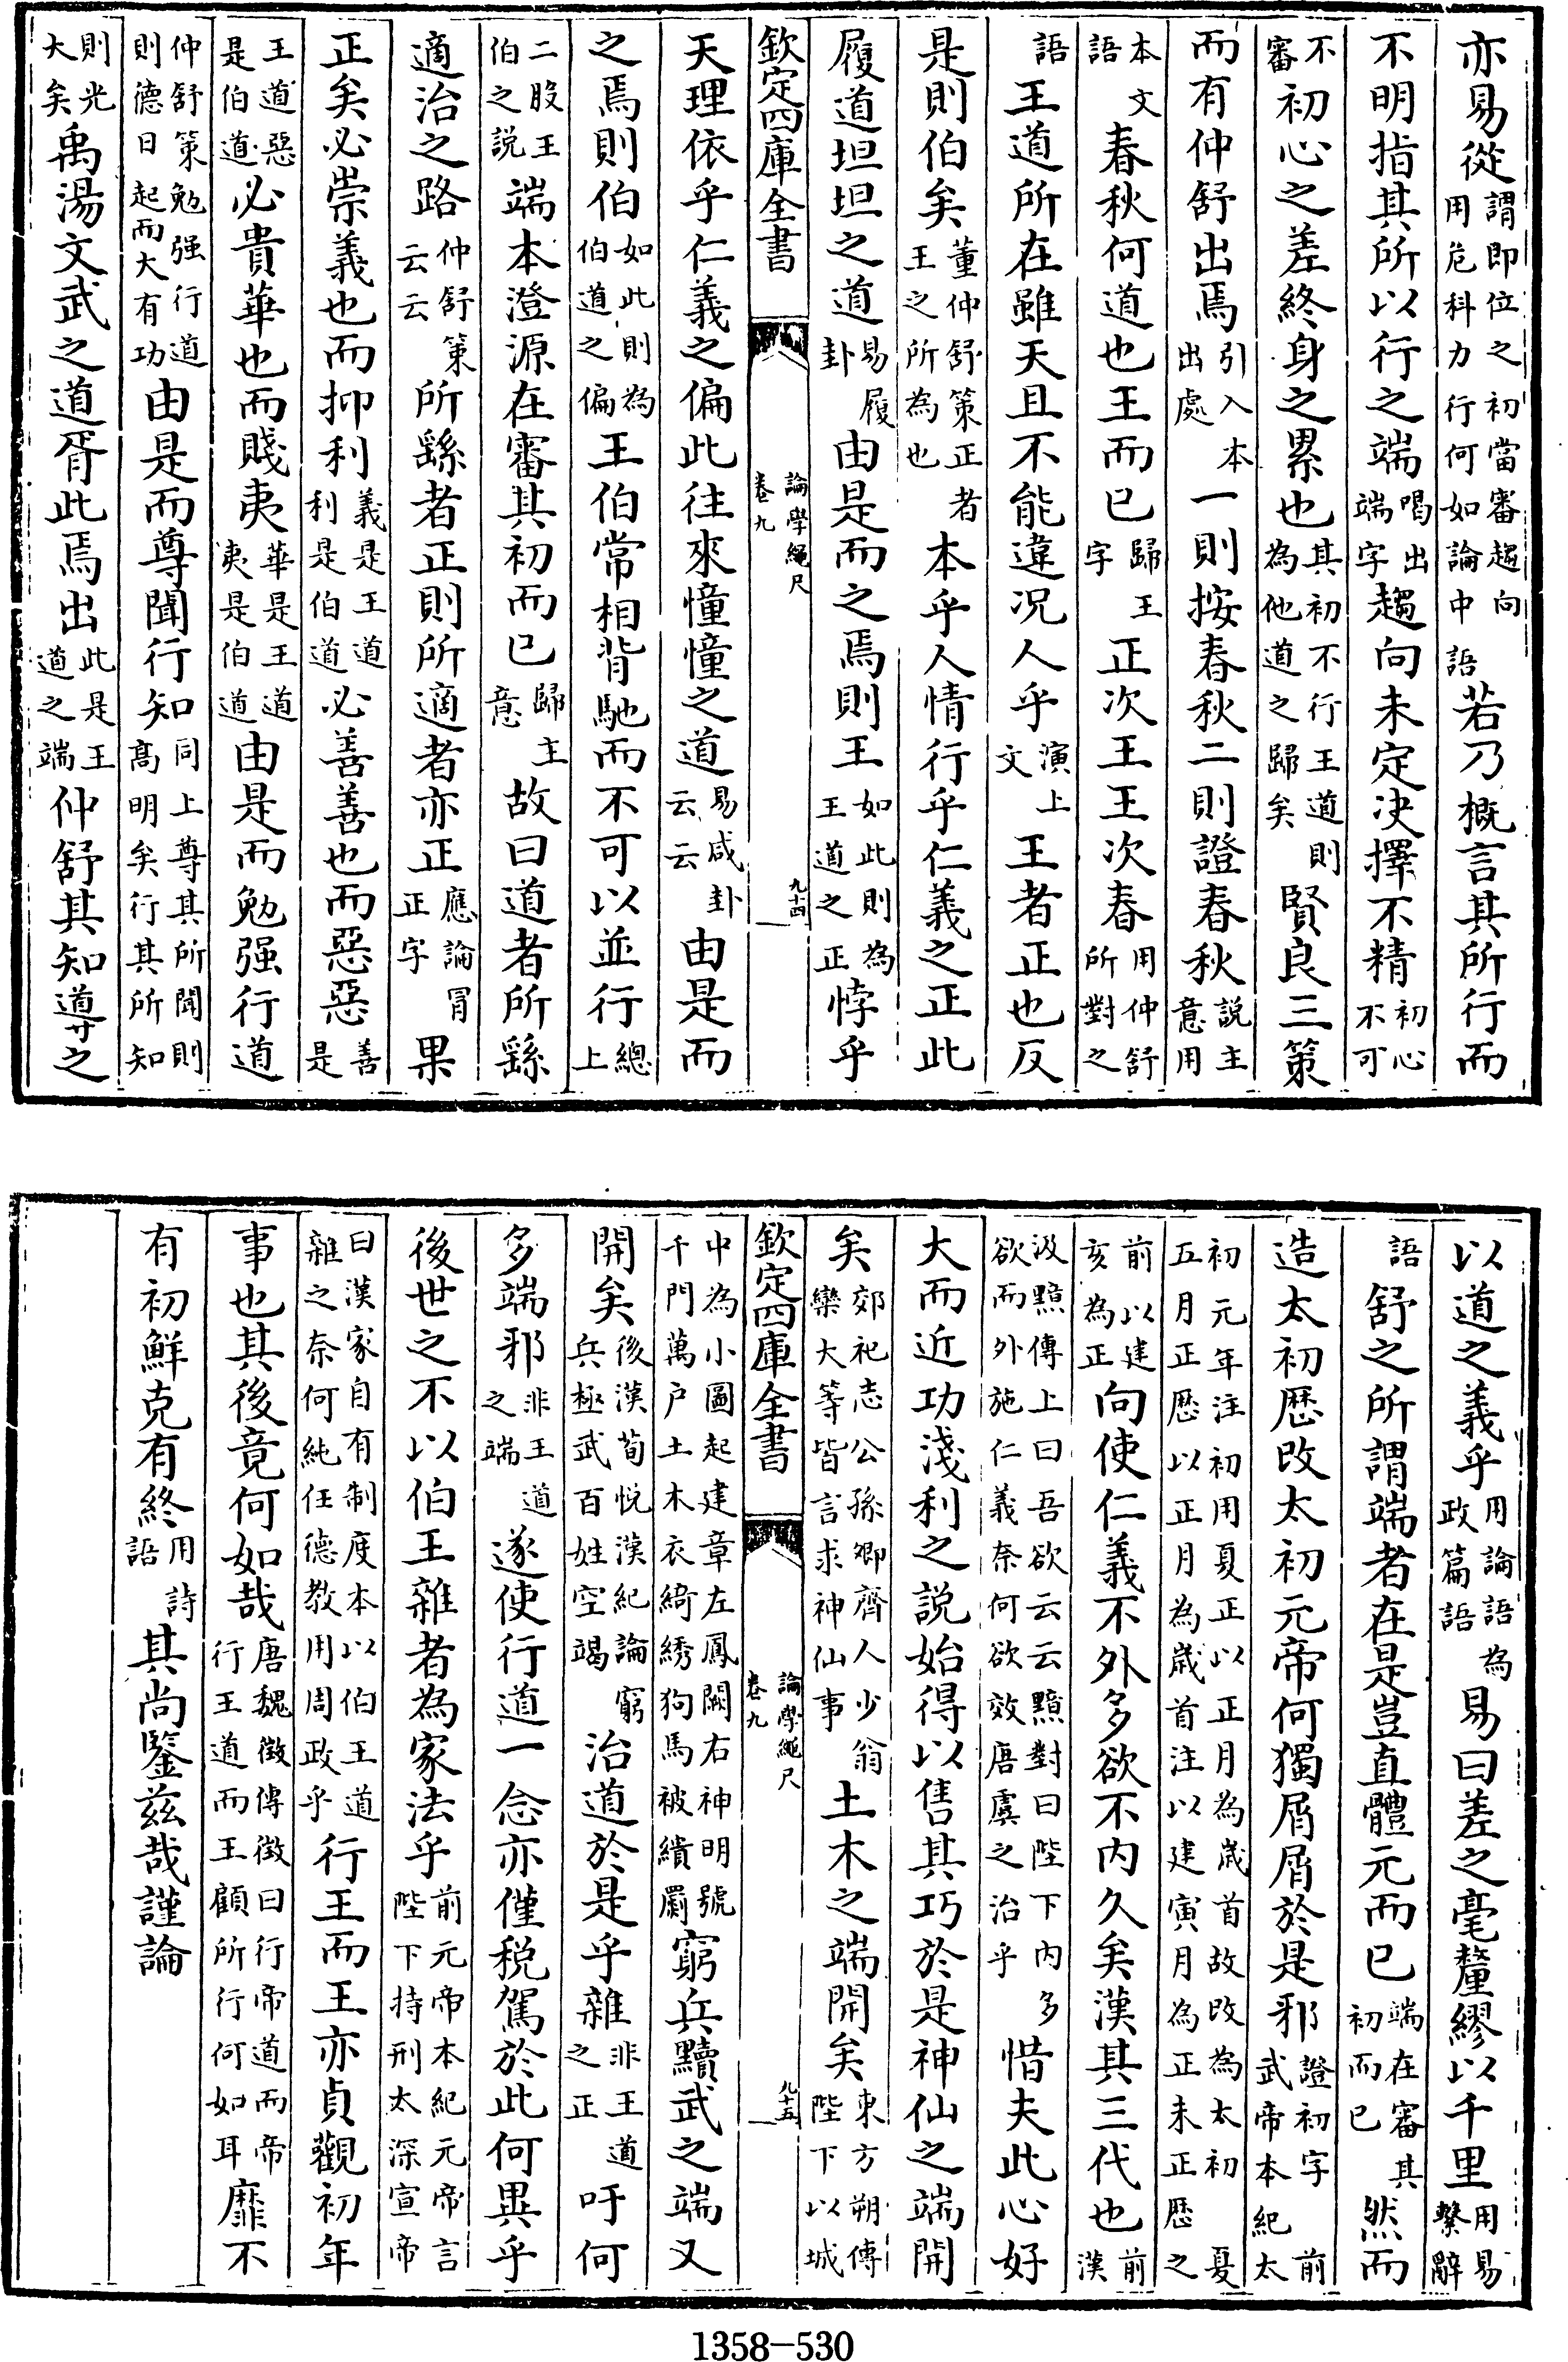 亦易從謂即位之初當審趨向用危科力行何如論中語若乃概言其所行而
不明指其所以行之端喝出端字趨向未定决擇不精初心不可
不審初心之差終身之累也其初不行王道則為他道之歸矣賢良三策
而有仲舒出焉引入本出處一則按春秋二則證春秋說主意用
本文語春秋何道也王而已歸王字正次王王次春用仲舒所對之
語王道所在雖天且不能違况人乎演上文王者正也反
是則伯矣董仲舒策正者王之所為也本乎人情行乎仁義之正此
履道坦坦之道易履卦由是而之焉則王如此則為王道之正悖乎
欽定四庫全書 論學繩尺卷九 九十四
天理依乎仁義之偏此往來憧憧之道易咸卦云云由是而
之焉則伯如此則為伯道之偏王伯常相背馳而不可以並行總上
二股王伯之說端本澄源在審其初而已歸主意故曰道者所繇
適治之路仲舒策云云所繇者正則所適者亦正應論冒正字果
正矣必崇義也而抑利義是王道利是伯道必善善也而惡惡善是
王道惡是伯道必貴華也而賤夷華是王道夷是伯道由是而勉强行道
仲舒策勉强行道則德日起而大有功由是而尊聞行知同上尊其所聞則高明矣行其所知
則光大矣禹湯文武之道胥此焉出此是王道之端仲舒其知導之
以道之義乎用論語為政篇語易曰差之毫釐繆以千里用易繫辭
語舒之所謂端者在是豈直體元而已端在審其初而已然而
造太初厯改太初元帝何獨屑屑於是邪證初字武帝本紀前太
初元年注初用夏正以正月為歲首故改為太初五月正厯以正月為歲首注以建寅月為正未正厯之夏
前以建亥為正向使仁義不外多欲不内久矣漢其三代也前漢
汲黯傳上曰吾欲云云黯對曰陛下内多欲而外施仁義奈何欲效唐虞之治乎惜夫此心好
大而近功淺利之說始得以售其巧於是神仙之端開
矣郊祀志公孫卿齊人少翁欒大等皆言求神仙事土木之端開矣東方朔傳陛下以城
欽定四庫全書 論學繩尺卷九 九十五
中為小圖起建章左鳳闕右神明號千門萬户土木衣綺綉狗馬被繢罽窮兵黷武之端又
開矣後漢荀悦漢紀論窮兵極武百姓空竭治道於是乎雜非王道之正吁何
多端邪非王道之端遂使行道一念亦僅税駕於此何異乎
後世之不以伯王雜者為家法乎前元帝本紀元帝言陛下持刑太深宣帝
曰漢家自有制度本以伯王道雜之奈何純任德教用周政乎行王而王亦貞觀初年
事也其後竟何如哉唐魏徵傳徵曰行帝道而帝行王道而王顧所行何如耳靡不
有初鮮克有終用詩語其尚鑒茲哉謹論
1358-530